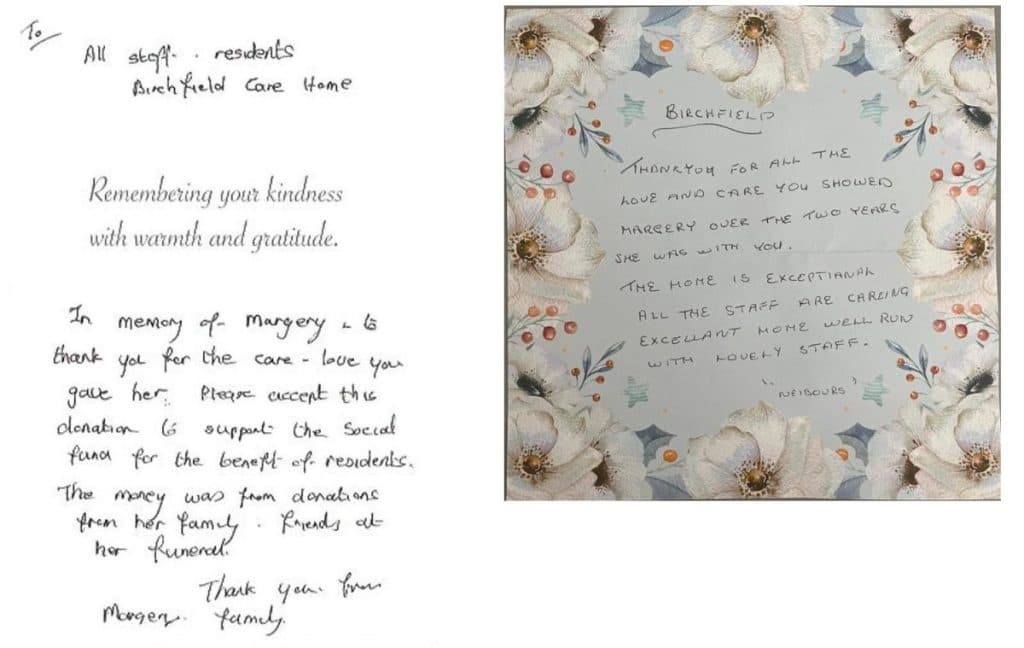 To
All staff . residents
Birchfield Care Home
Remembering your kindness
with warmth and gratitude.
In memory of Margery & to
thank you for the care - love you
gave her. Please accept this
donation to support the Social
fund for the benefit of residents.
The money was from donations
from her family . friends at
her funeral.
Thank you from
Margery. family.
BIRCHFIELD
THANKYOU FOR ALL THE
LOVE AND CARE YOU SHOWED
MARGERY OVER THE TWO YEARS
SHE WAS WITH YOU.
THE HOME IS EXCEPTIANAL
ALL THE STAFF ARE CAREING
EXCELLANT HOME WELL RUN
WITH LOVELY STAFF.
"NEIBOURS"